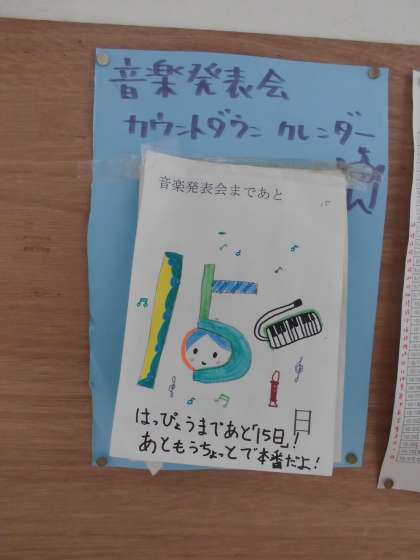 音楽発表会
カウントダウン カレンダー
音楽発表会まであと
15
日
はっぴょうまであど「15日」!
あともうちょっとで本番だよ!